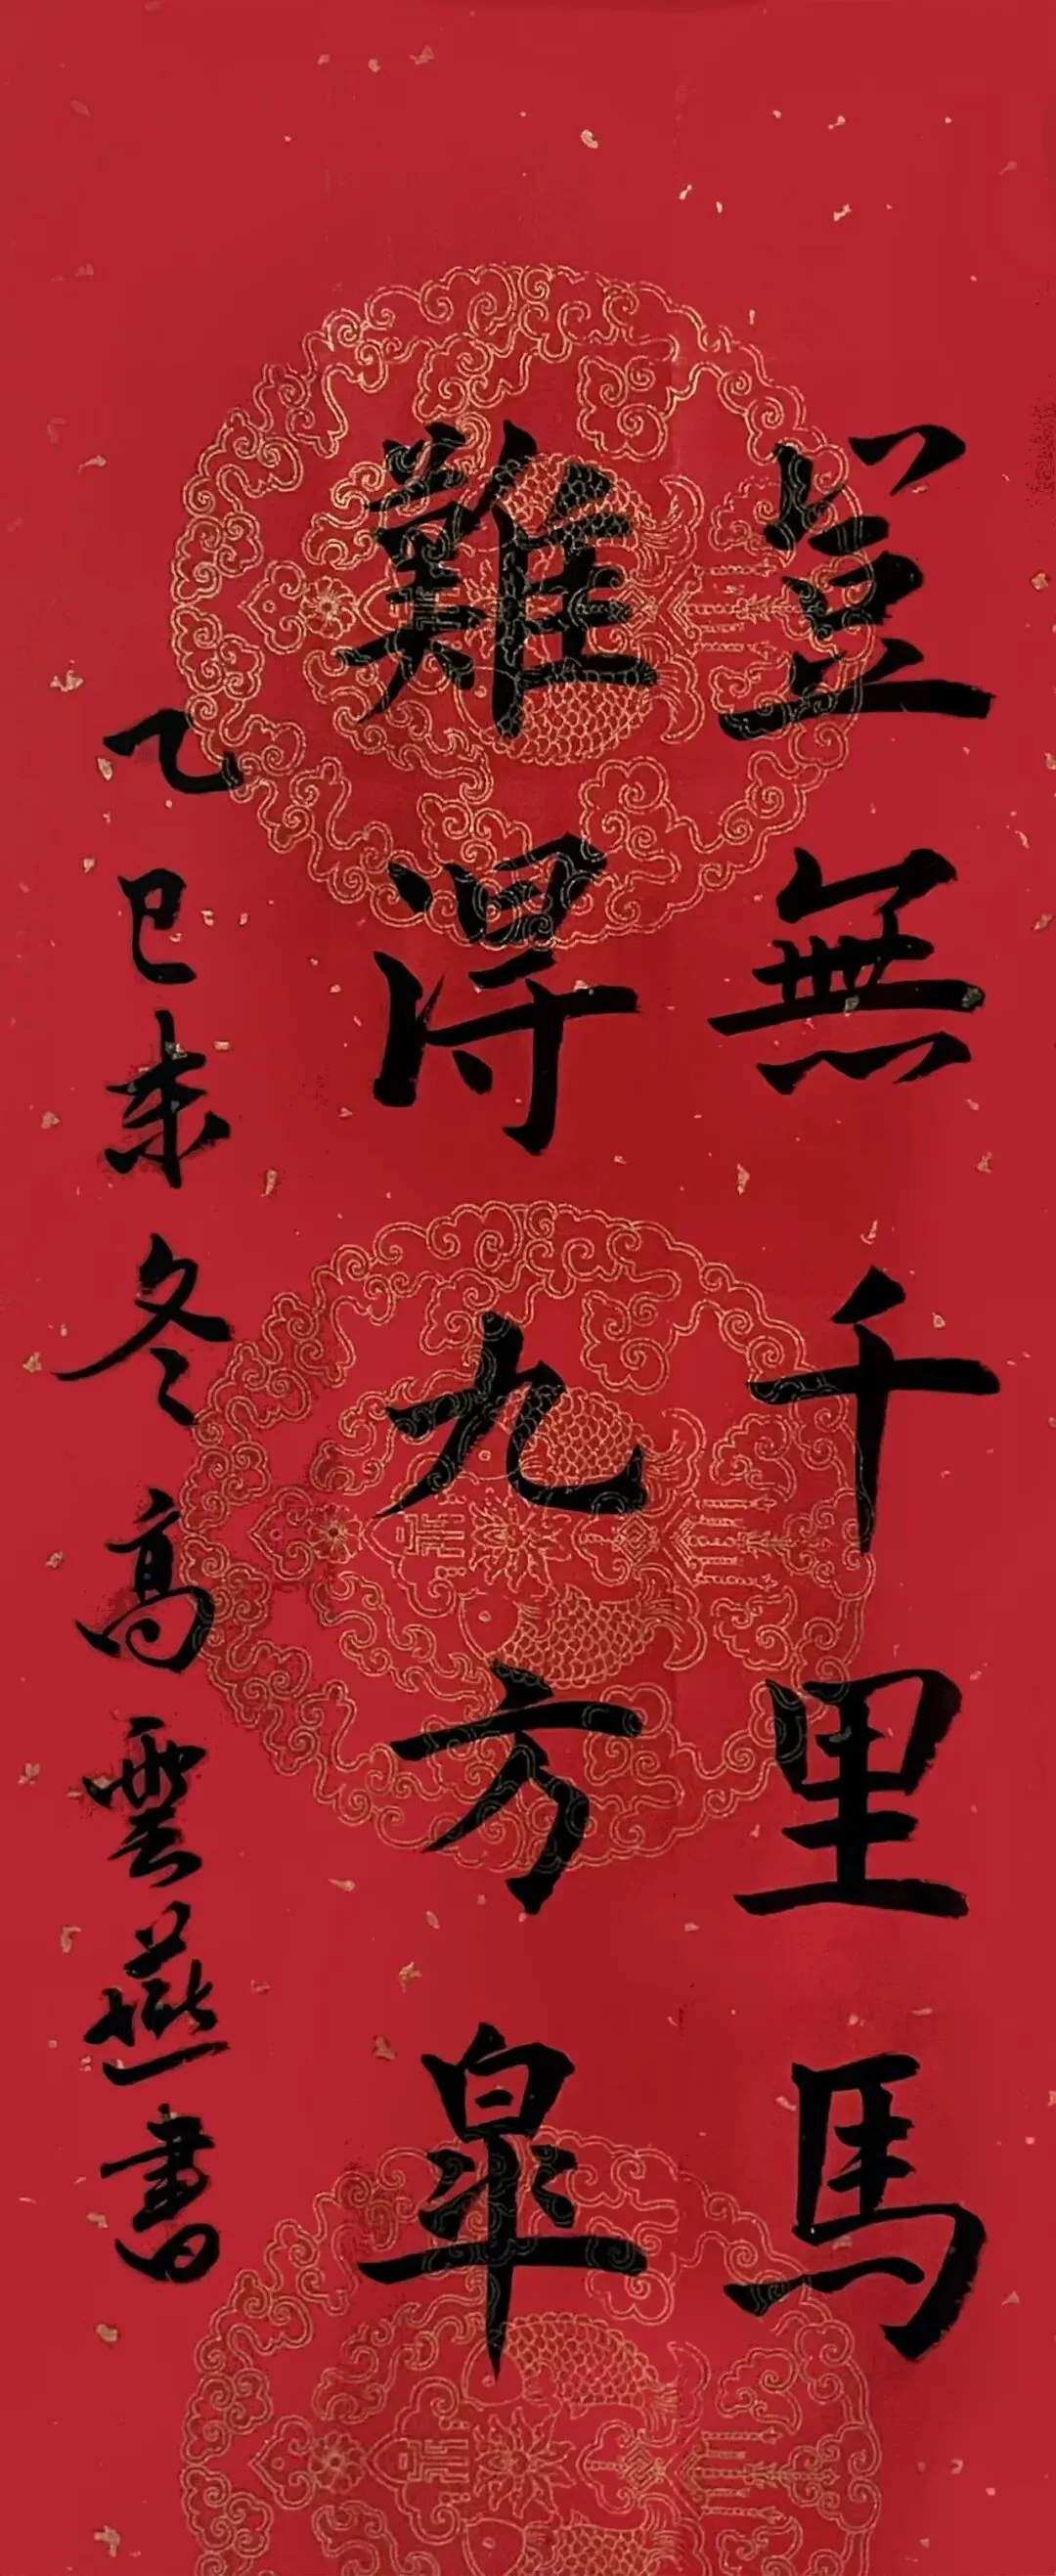 豈無千里馬
難得九方皐
乙巳冬高雲燕書